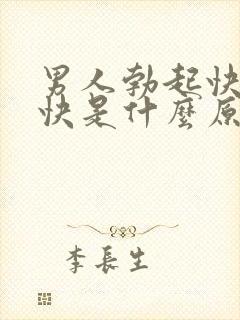 男人勃起快
快是什麼原
李長生